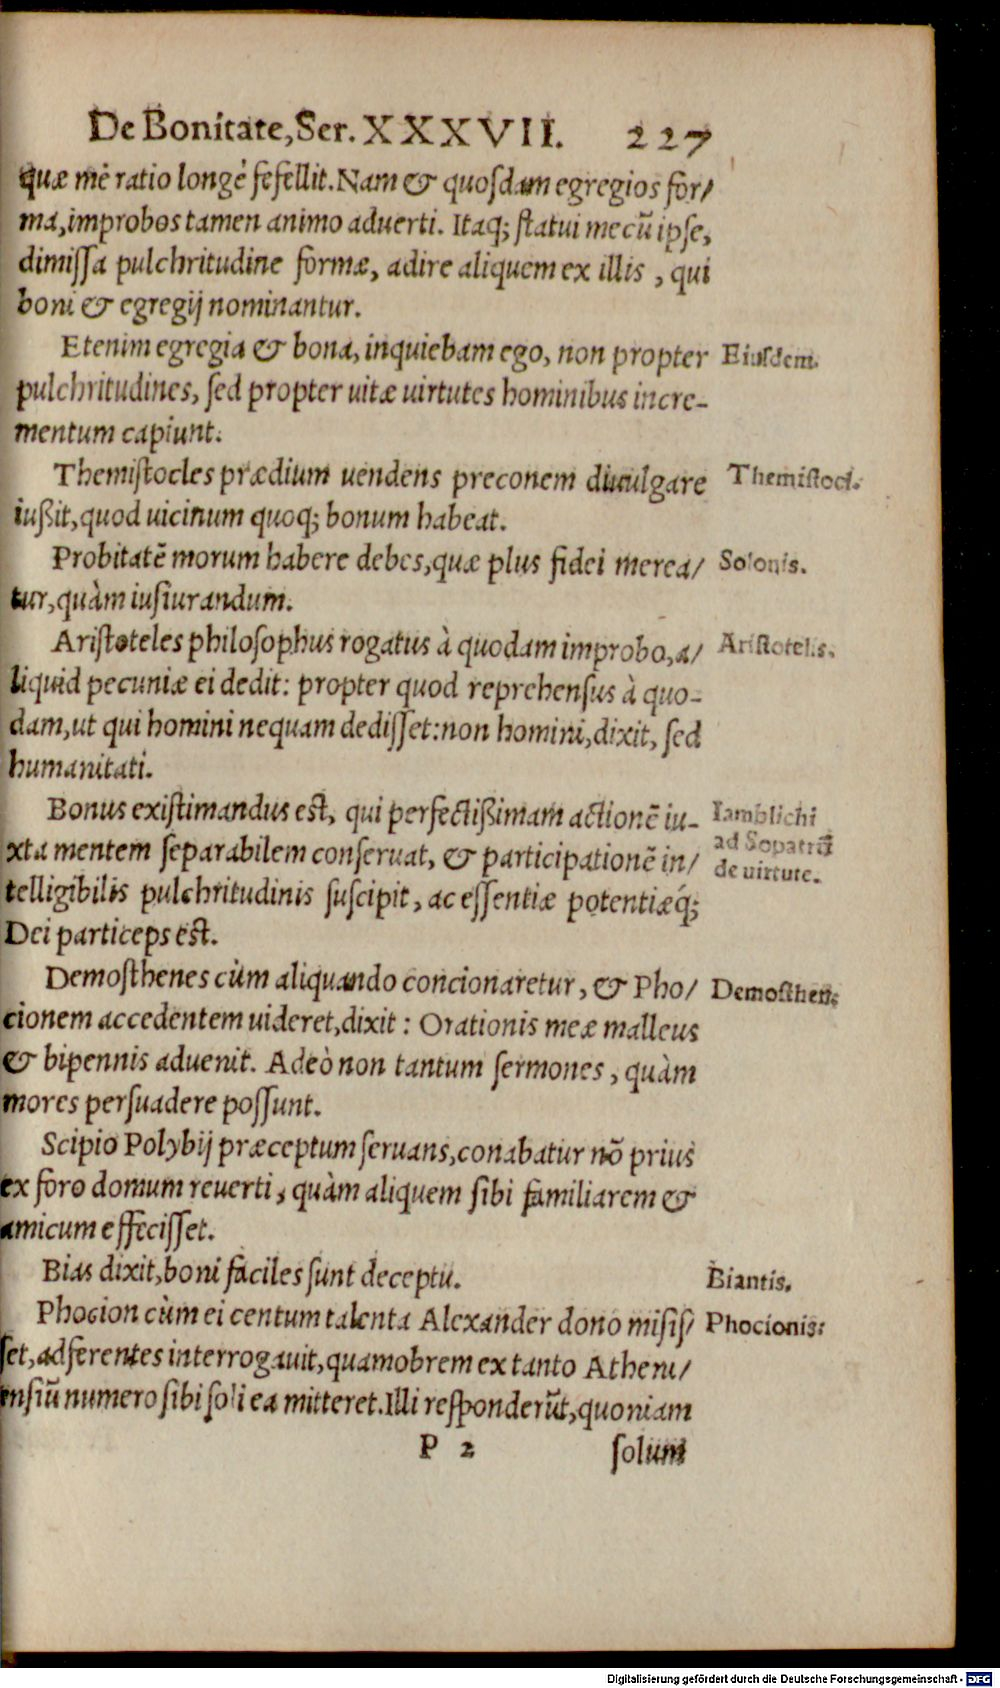 De Bonitate, Ser. XXXVII. 227
quæ mē ratio longè fefellit. Nam & quosdam egregios for/
ma, improbos tamen animo aduerti. Itaq; statui mecū ipse,
dimissa pulchritudine formæ, adire aliquem ex illis, qui
boni & egregij nominantur.
Etenim egregia & bona, inquiebam ego, non propter Eiusdem.
pulchritudines, sed propter uitæ uirtutes hominibus incre-
mentum capiunt.
Themistocles prædium uendens preconem diuulgare Themistocl.
iußit, quod uicinum quoq; bonum habeat.
Probitatē morum habere debes, quæ plus fidei merea/ Solonis.
tur, quàm iusiurandum.
Aristoteles philosophus rogatus à quodam improbo, a/ Aristotelis.
liquid pecuniæ ei dedit: propter quod reprehensus à quo-
dam, ut qui homini nequam dedisset: non homini, dixit, sed
humanitati.
Bonus existimandus est, qui perfectißimam actionē iu- Iamblichi
xta mentem separabilem conseruat, & participationē in/ ad Sopatrū
telligibilis pulchritudinis suscipit, ac essentiæ potentiæq́; de uirtute.
Dei particeps est.
Demosthenes cùm aliquando concionaretur, & Pho/ Demosthen:
cionem accedentem uideret, dixit: Orationis meæ malleus
& bipennis aduenit. Adeò non tantum sermones, quàm
mores persuadere possunt.
Scipio Polybij præceptum seruans, conabatur nō prius
ex foro domum reuerti, quàm aliquem sibi familiarem &
amicum effecisset.
Bias dixit, boni faciles sunt deceptu. Biantis.
Phocion cùm ei centum talenta Alexander dono misis/ Phocionis:
set, adferentes interrogauit, quamobrem ex tanto Atheni/
ensiū numero sibi soli ea mitteret. Illi responderūt, quoniam
P 2 solum
Digitalisierung gefördert durch die Deutsche Forschungsgemeinschaft - DFG